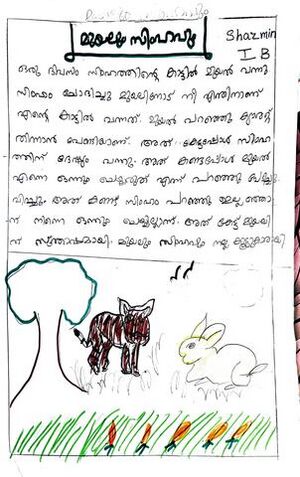 മുയലും സിംഹവും
Shazmin
I B
ഒരു ദിവസം സിംഹത്തിന്റെ കാട്ടിൽ മുയൽ വന്നു
സിംഹം ചോദിച്ചു മുയലിനോട് നീ എന്തിനാണ്
എന്റെ കാട്ടിൽ വന്നത്. മുയൽ പറഞ്ഞു ക്യാരറ്റ്
തിന്നാൻ വേണ്ടിയാണ്. അത് കേട്ടപ്പോൾ സിംഹ
ത്തിന് ദേഷ്യം വന്നു. അത് കണ്ടപ്പോൾ മുയൽ
എന്നെ ഒന്നും ചെയ്യരുത് എന്ന് പറഞ്ഞു
അത് കണ്ട് സിംഹം പറഞ്ഞു ഇല്ല ഞാ
ൻ നിന്നെ ഒന്നും ചെയ്യില്ലാന്ന്. അത് കേട്ട് മുയലി
ന് സന്തോഷമായി. മുയലും സിംഹവും നല്ല കൂട്ടുകാരായി